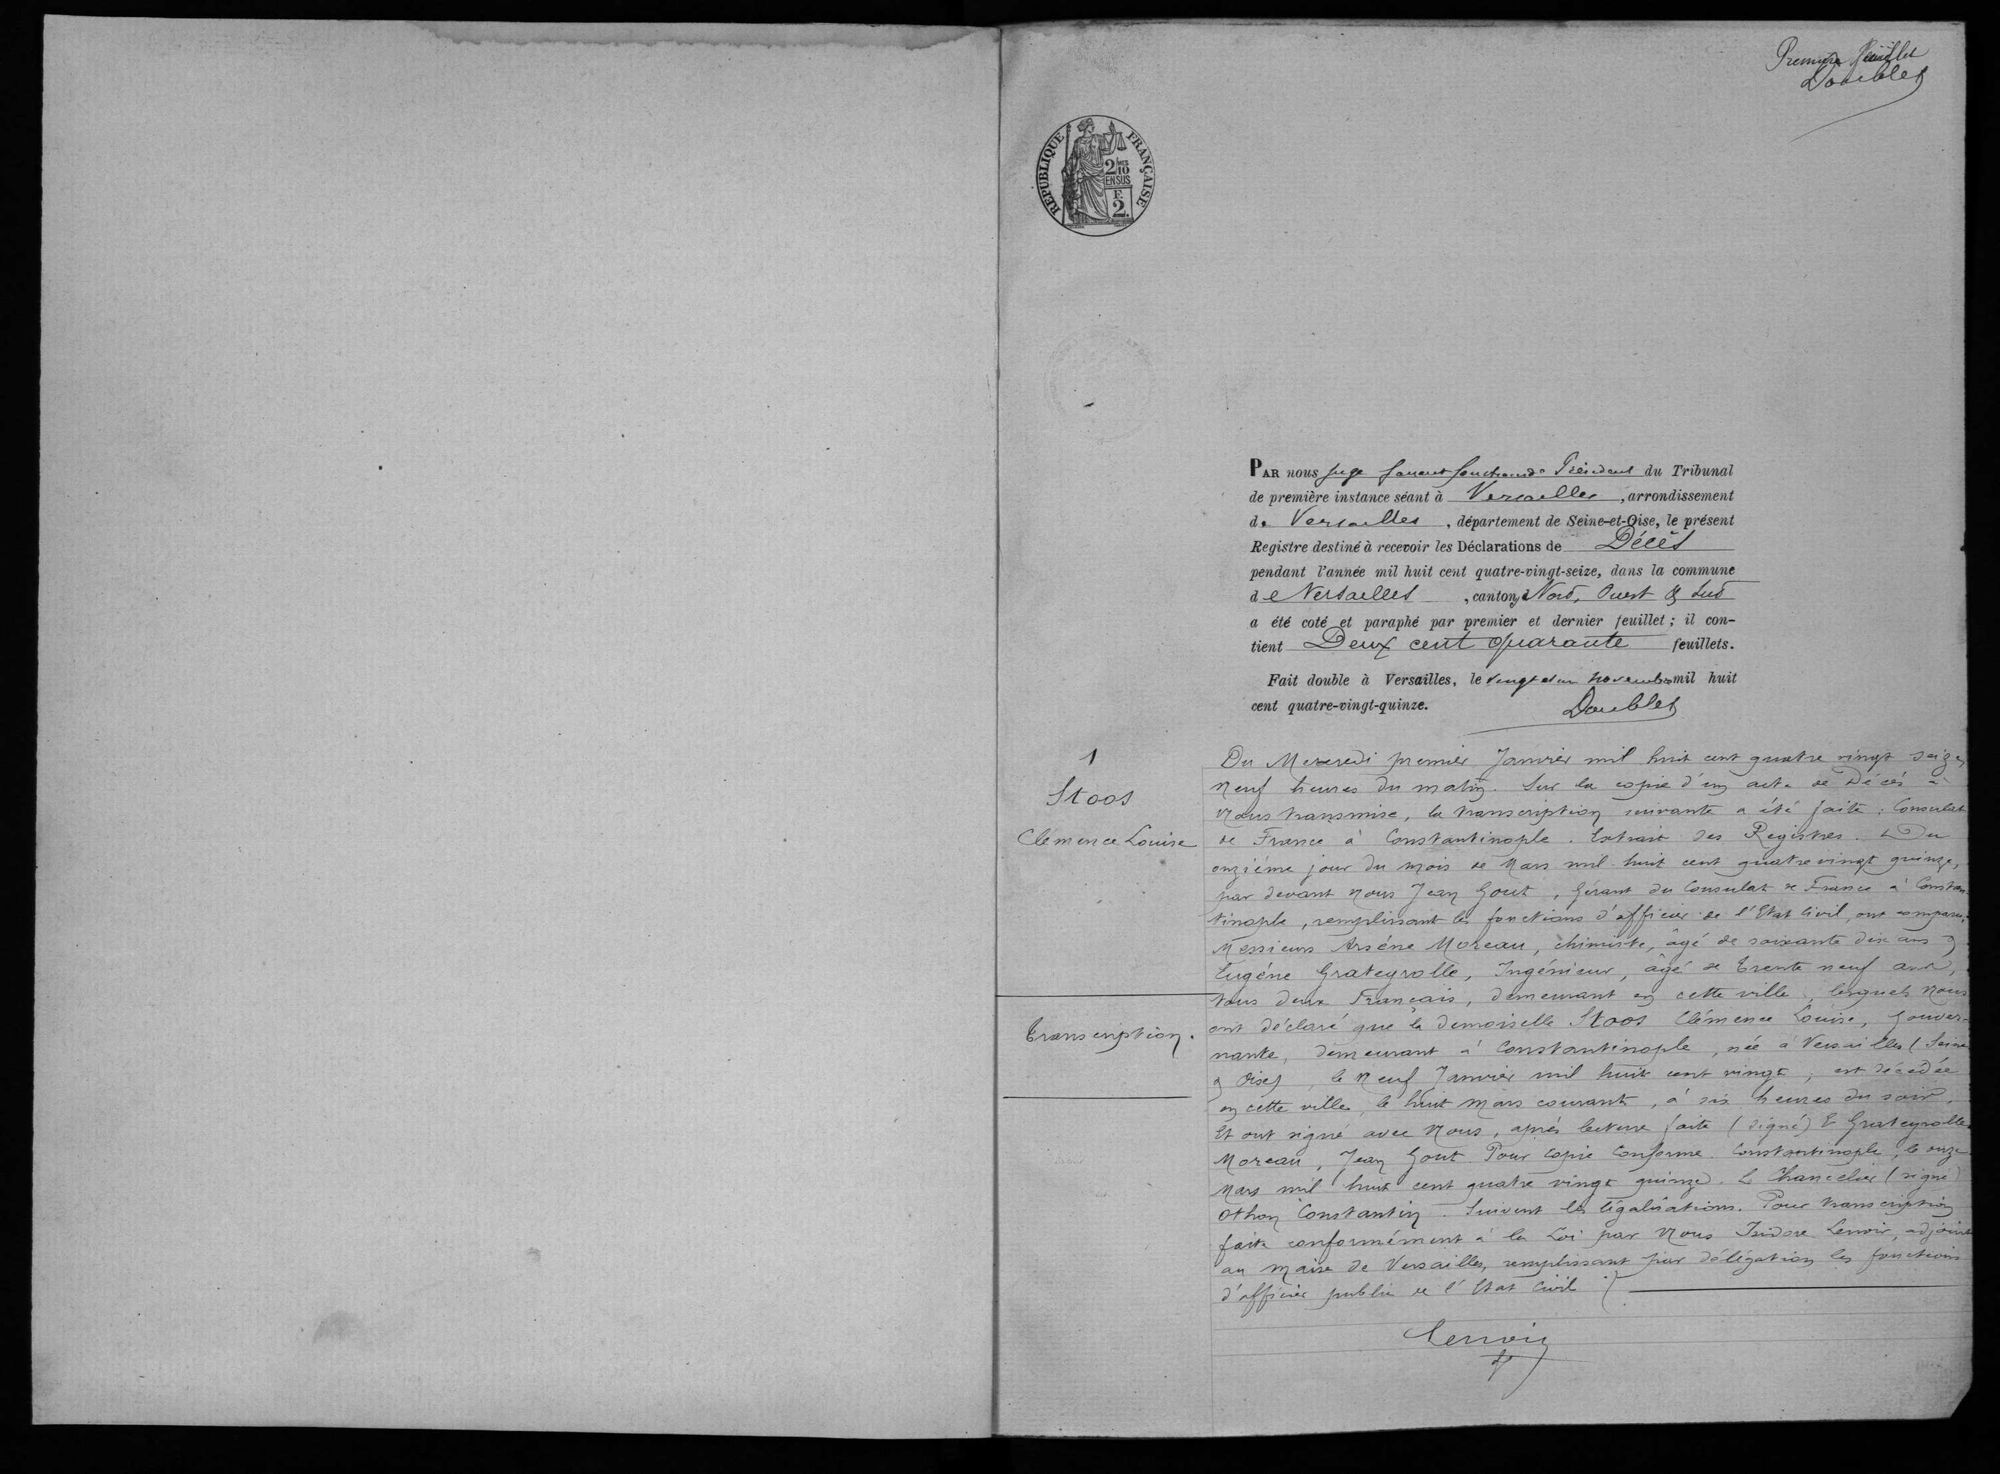 Premier feuillet
Doublet
RÉPUBLIQUE FRANÇAISE
2/10
EN SUS
F.
2.
PAR nous Juge faisant fonctions de Président du Tribunal
de première instance séant à Versailles, arrondissement
de Versailles, département de Seine-et-Oise, le présent
Registre destiné à recevoir les Déclarations de Décès
pendant l'année mil huit cent quatre-vingt-seize, dans la commune
de Versailles, cantons Nord, Ouest & Sud
a été coté et paraphé par premier et dernier feuillet; il con-
tient Deux cent quarante feuillets.
Fait double à Versailles, le vingt et un novembre mil huit
cent quatre-vingt-quinze.
Doublet
1
Stoos
Clémence Louise
Transcription.
Du Mercredi premier Janvier mil huit cent quatre vingt seize,
neuf heures du matin. Sur la copie d'un acte de Décès à
nous transmise, la transcription suivante a été faite : Consulat
de France à Constantinople. Extrait des Registres. Du
onzième jour du mois de Mars mil huit cent quatre vingt quinze,
par devant nous Jean Gout, Gérant du Consulat de France à Constan-
tinople, remplissant les fonctions d'officier de l'Etat Civil, ont comparu :
Messieurs Arsène Moreau, chimiste, âgé de soixante dix ans &
Eugène Grateyrolle, Ingénieur, âgé de trente neuf ans,
tous deux Français, demeurant en cette ville, lesquels nous
ont déclaré que la demoiselle Stoos Clémence Louise, gouver-
nante, demeurant à Constantinople, née à Versailles (Seine
& Oise), le neuf Janvier mil huit cent vingt, est décédée
en cette ville, le huit mars courant, à six heures du soir.
Et ont signé avec nous, après lecture faite (signé) E Grateyrolle
Moreau, Jean Gout. Pour copie conforme. Constantinople, le onze
Mars mil huit cent quatre vingt quinze. Le Chancelier (signé)
Othon Constantin. Suivent les légalisations. Pour transcription
faite conformément à la Loi par Nous Isidore Lenoir, adjoint
au Maire de Versailles, remplissant par délégation les fonctions
d'officier public de l'Etat Civil
Lenoir